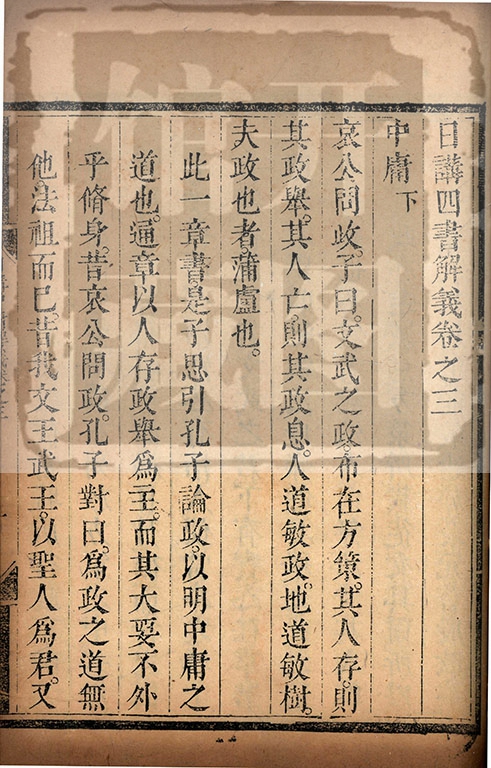 日講四書解義卷之三
中庸下
哀公問政。子曰。文武之政。布在方策。其人存。則
其政舉。其人亡。則其政息。人道敏政。地道敏樹。
夫政也者。蒲盧也。
此一章書是子思引孔子論政。以明中庸之
道也。通章以人存政舉為主。而其大要不外
乎脩身。昔哀公問政。孔子對曰。為政之道無
他法祖而已。昔我文王武王。以聖人為君。又